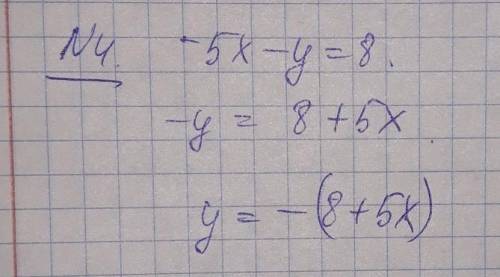 N4. -5x-y=8.
-y = 8+5x.
y = -(8+5x)